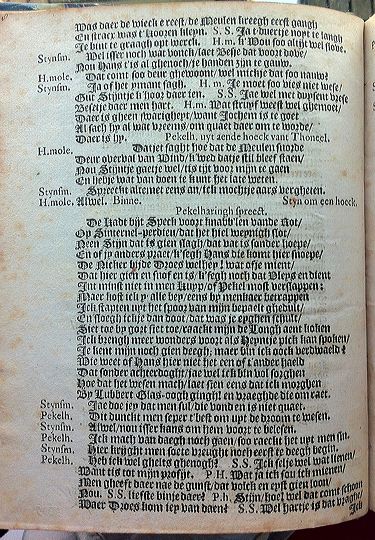 Was daer de wieck e reest, de Meulen kreegh eerst gangh
En stracx was 't koozen kleyn. S. S. Ja t duertje noyt te langh
Je bint te graagh opt werck. H.m. k Wou soo altijt wel slove.
Stynsm. Wel isser noch wat vonck/ laet Besje dat voort dove,
Nou Hans t'is al ghenoch/ je handen zijn te gauw.
H.mole. Dat comt soo deur ghewoont/ wel mickje dat soo nauw?
Stynsm. Ja of het ymant sagh. H.m. Je moet soo vies niet wese/
Gut Stijntje k hoop daer ien. S.S. Jae wel met duysent vrese
Besetje daer men hart. H.m. Wat struyf weest wel ghemoet/
Daer is gheen swarigheyt/ want Jochem is te goet
Al sach hy al wat vreems/ om quaet daer om te worde/
Daer is hy. Pekelh. uyt aende hoeck van Thoneel.
H.mole. Datjet saght hoe dat de Meulen snorde
Deur overval van Wind/ k wed datje stil bleef staen/
Nou Stijntje gaetje wel/ tis tijt voor mijn te gaen
En hebje wat van doen te kunt het late weten.
Stynsm. Spreeckt altemet eens an/ ick mochtje aars vergheten.
H.mole. Alwel. Binne. Styn om een hoeck.
Pekelharingh spreeckt.
De Kadt bijt Speck voor knabb'len vande Rot/
Op Sinternel-perdien/ dat het hiel weynigh slot/
Neen Stijn dat is gien slagh/ dat wat is sonder hoepe/
En of jy anders praet/ k segh Hans die komt hier snoepe/
De Nicker bijde Droes wel hey! wat ofse mient/
Dat hier gien en snof en is/ k segh noch dat Pleys en dient
Ant minst niet in men Kuyp/ of Pekel most verslappen:
Maer kost ick y alle bey/ eens by menkaer betrappen
Ick stappen uyt het spoor van mijn bepaelt ghedult/
En sloegh ickje dan doot/ dat was je eyghen schult/
Hier toe by gort siet toe/ raackt mijn de Tongh aent koken
Ick brengh meer wonders voort als Heyntje pick kan spoken/
Je kent mijn noch gien deegh; maer bin ick oock verdwaeld?
Wie weet of Hans hier niet het een of t'ander haeld
Dat sonder achterdoght/ jae wel ick bin vol sorghen
Hoe dat het wesen mach/ laet sien eens dat ick morghen
By Lubbert Glas-oogh gingh! en vraeghde die om raet.
Stynsm. Jae doe jey dat men sul/ die vond en is niet quaet.
Pekelh. Dit dunckt men seper t' best om upt de droom te wesen.
Stynsm. Alwel/ nou isser kans om hem voort te belesen.
Pekelh. Ick mach van daegh noch gaen/ soo raeckt het uyt men sin.
Stynsm. Hier krijght men soete vreught noch eerst te deegh begin.
Pekelh. Heb ick wel ghelts ghenogh? S.S. Ickselje wel wat lienen/
Want tis tot mijn profijt. P.H. Wat sa ick sou ick mienen/
Men gheeft daer nae de gunst/ dat volck en eyst gien loon/
Nou. S.S. liefste binje daer? P.h. Stijn/ hoe/ wel dat comt schoon
Waer Droes kom jey van daen? S.S. Wel hartje is dat vraghe/
Ick